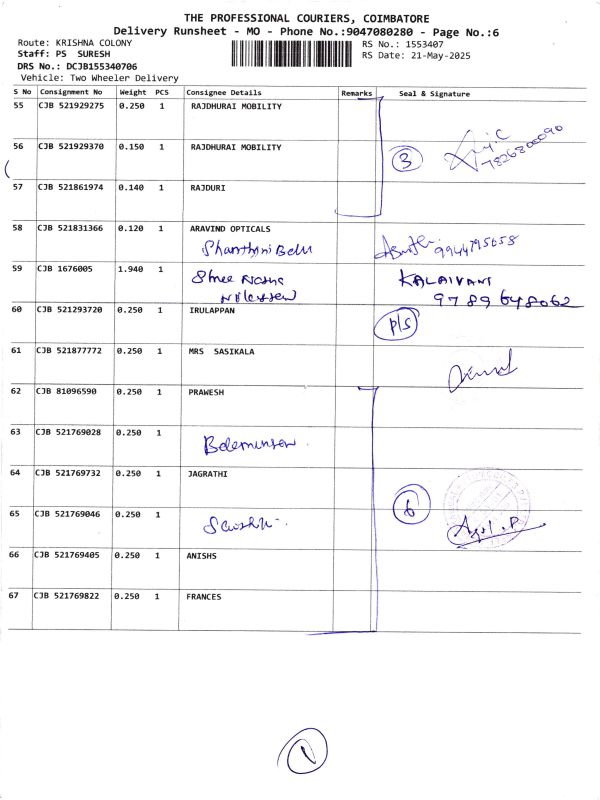 THE PROFESSIONAL COURIERS, COIMBATORE
Delivery Runsheet - MO - Phone No.:9047080280 - Page No.:6
Route: KRISHNA COLONY
RS No.: 1553407
Staff: PS SURESH
RS Date: 21-May-2025
DRS No.: DCJB155340706
Vehicle: Two Wheeler Delivery
S No Consignment No Weight PCS Consignee Details Remarks Seal & Signature
55 CJB 521929275 0.250 1 RAJDHURAI MOBILITY
56 CJB 521929370 0.150 1 RAJDHURAI MOBILITY
3
7826800090
57 CJB 521861974 0.140 1 RAJDURI
58 CJB 521831366 0.120 1 ARAVIND OPTICALS
9944795658
59 CJB 1676005 1.940 1 Shree
KALAIVANI
9789648062
60 CJB 521293720 0.250 1 IRULAPPAN
P/S
61 CJB 521877772 0.250 1 MRS SASIKALA
62 CJB 81096590 0.250 1 PRAWESH
63 CJB 521769028 0.250 1
64 CJB 521769732 0.250 1 JAGRATHI
6
65 CJB 521769046 0.250 1
66 CJB 521769405 0.250 1 ANISHS
67 CJB 521769822 0.250 1 FRANCES
1